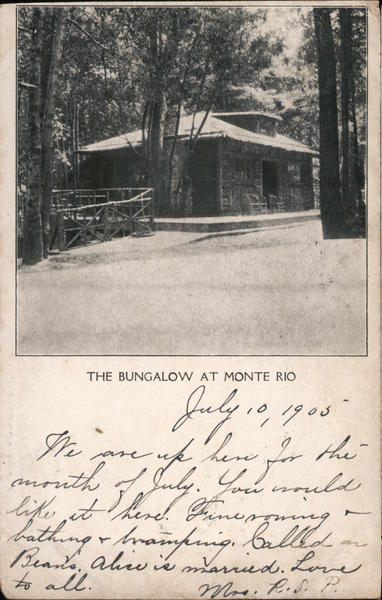 THE BUNGALOW AT MONTE RIO
July 10, 1905
We are up here for the
month of July. You would
like it here. Fine rowing +
bathing + tramping. Called on
Bean's, Alice is married. Love
to all. Mrs. R. S. P.